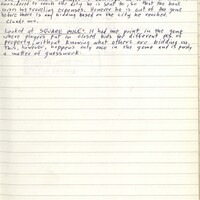 considered to reach the city he is sent to, so that the bank
covers his travelling expenses. However he is out of the game
before there is any bidding based on the city he reached.
Claude won.
Looked at SQUARE MILE. It had one point in the game
where players put in closed bids for different plots of
property, without knowing what others are bidding on.
This, however, happens only once in the game and is purely
a matter of guesswork.